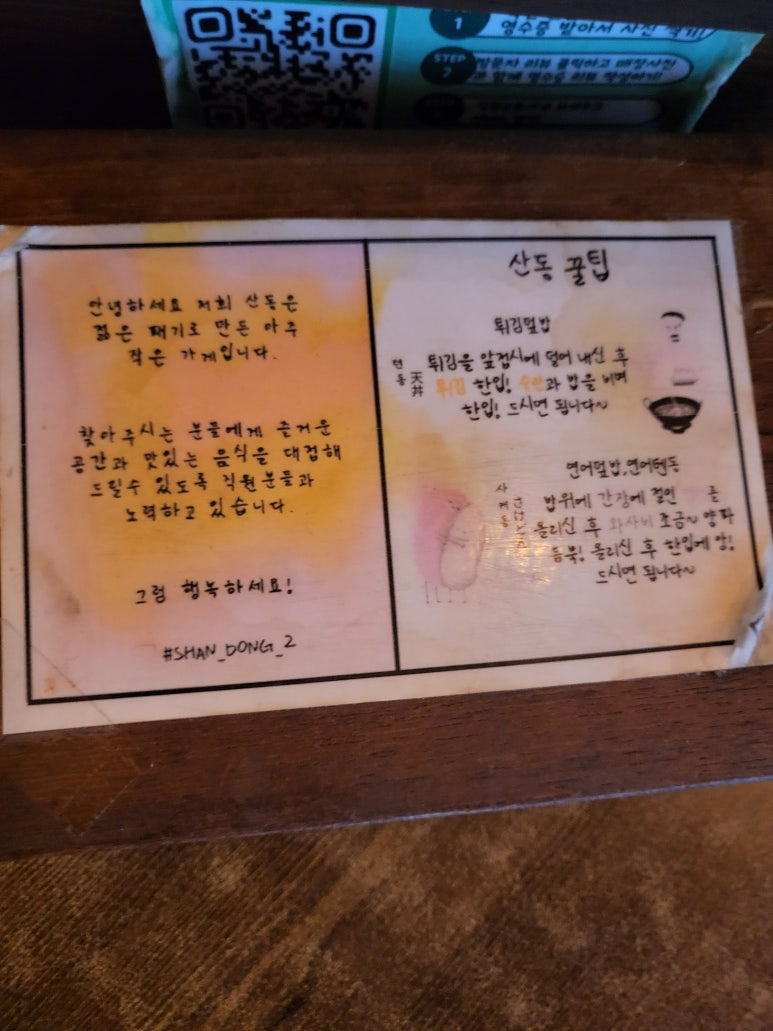 1
영수증 받아서 사진 찍기!
STEP
2
방문자 리뷰 클릭하고 매장사진
과 함께 영수증 리뷰 작성하기!
안녕하세요 저희 산동은
젊은 패기로 만든 아주
작은 가게입니다.
찾아주시는 분들에게 즐거운
공간과 맛있는 음식을 대접해
드릴수 있도록 직원분들과
노력하고 있습니다.
그럼 행복하세요!
#SHAN_DONG_2
산동 꿀팁
튀김덮밥
텐동
天丼
튀김을 앞접시에 덜어 내신 후
튀김 한입! 수란과 밥을 비벼
한입! 드시면 됩니다~
연어덮밥,연어텐동
사케동
밥위에 간장에 절인 를
올리신 후 와사비 조금~ 양파
듬뿍! 올리신 후 한입에 앙!
드시면 됩니다~